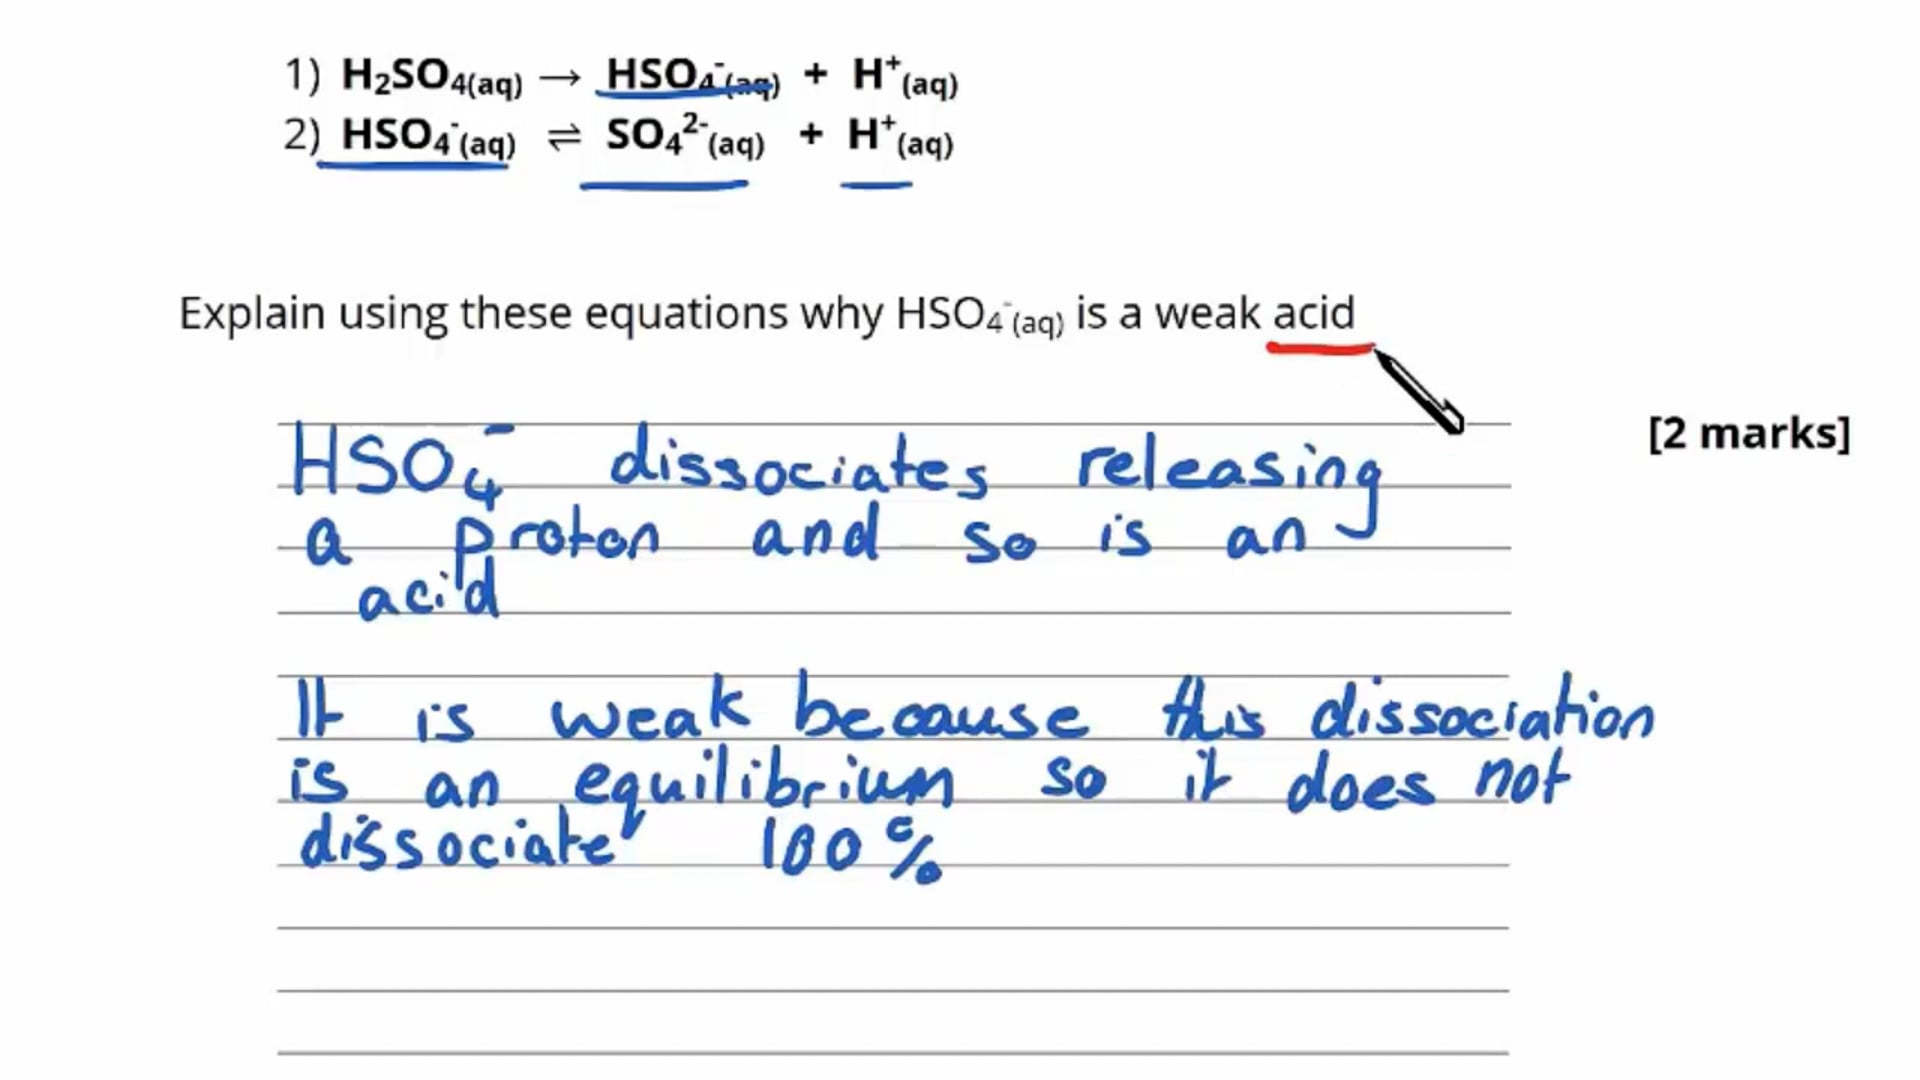 1) H₂SO₄(aq) → HSO₄⁻(aq) + H⁺(aq)
2) HSO₄⁻(aq) ⇌ SO₄²⁻(aq) + H⁺(aq)
Explain using these equations why HSO₄⁻(aq) is a weak acid
[2 marks]
HSO₄⁻ dissociates releasing
a proton and so is an
acid
It is weak because this dissociation
is an equilibrium so it does not
dissociate 100%